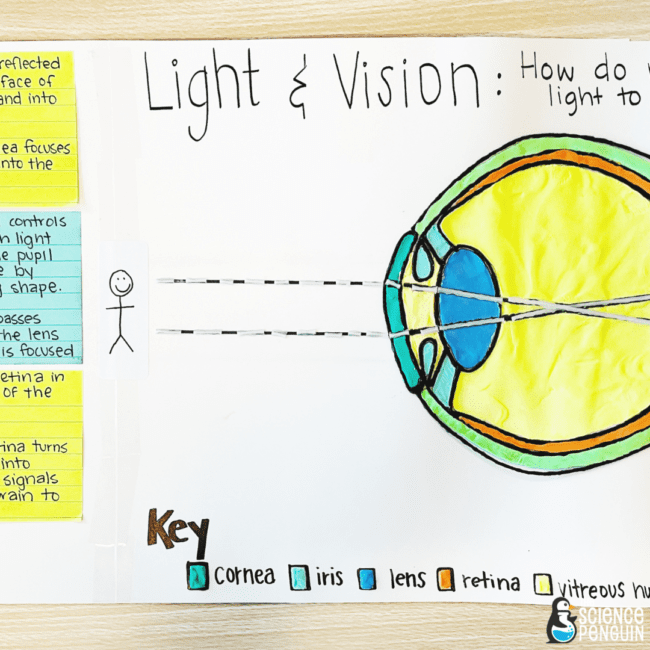 Light & Vision: How do
light to
reflected
face of
and into
ea focuses
nto the
controls
light
pupil
by
shape.
passes
the lens
is focused
etina in
of the
ina turns
into
signals
rain to
Key
cornea iris lens retina vitreous hu
SCIENCE
PENGUIN